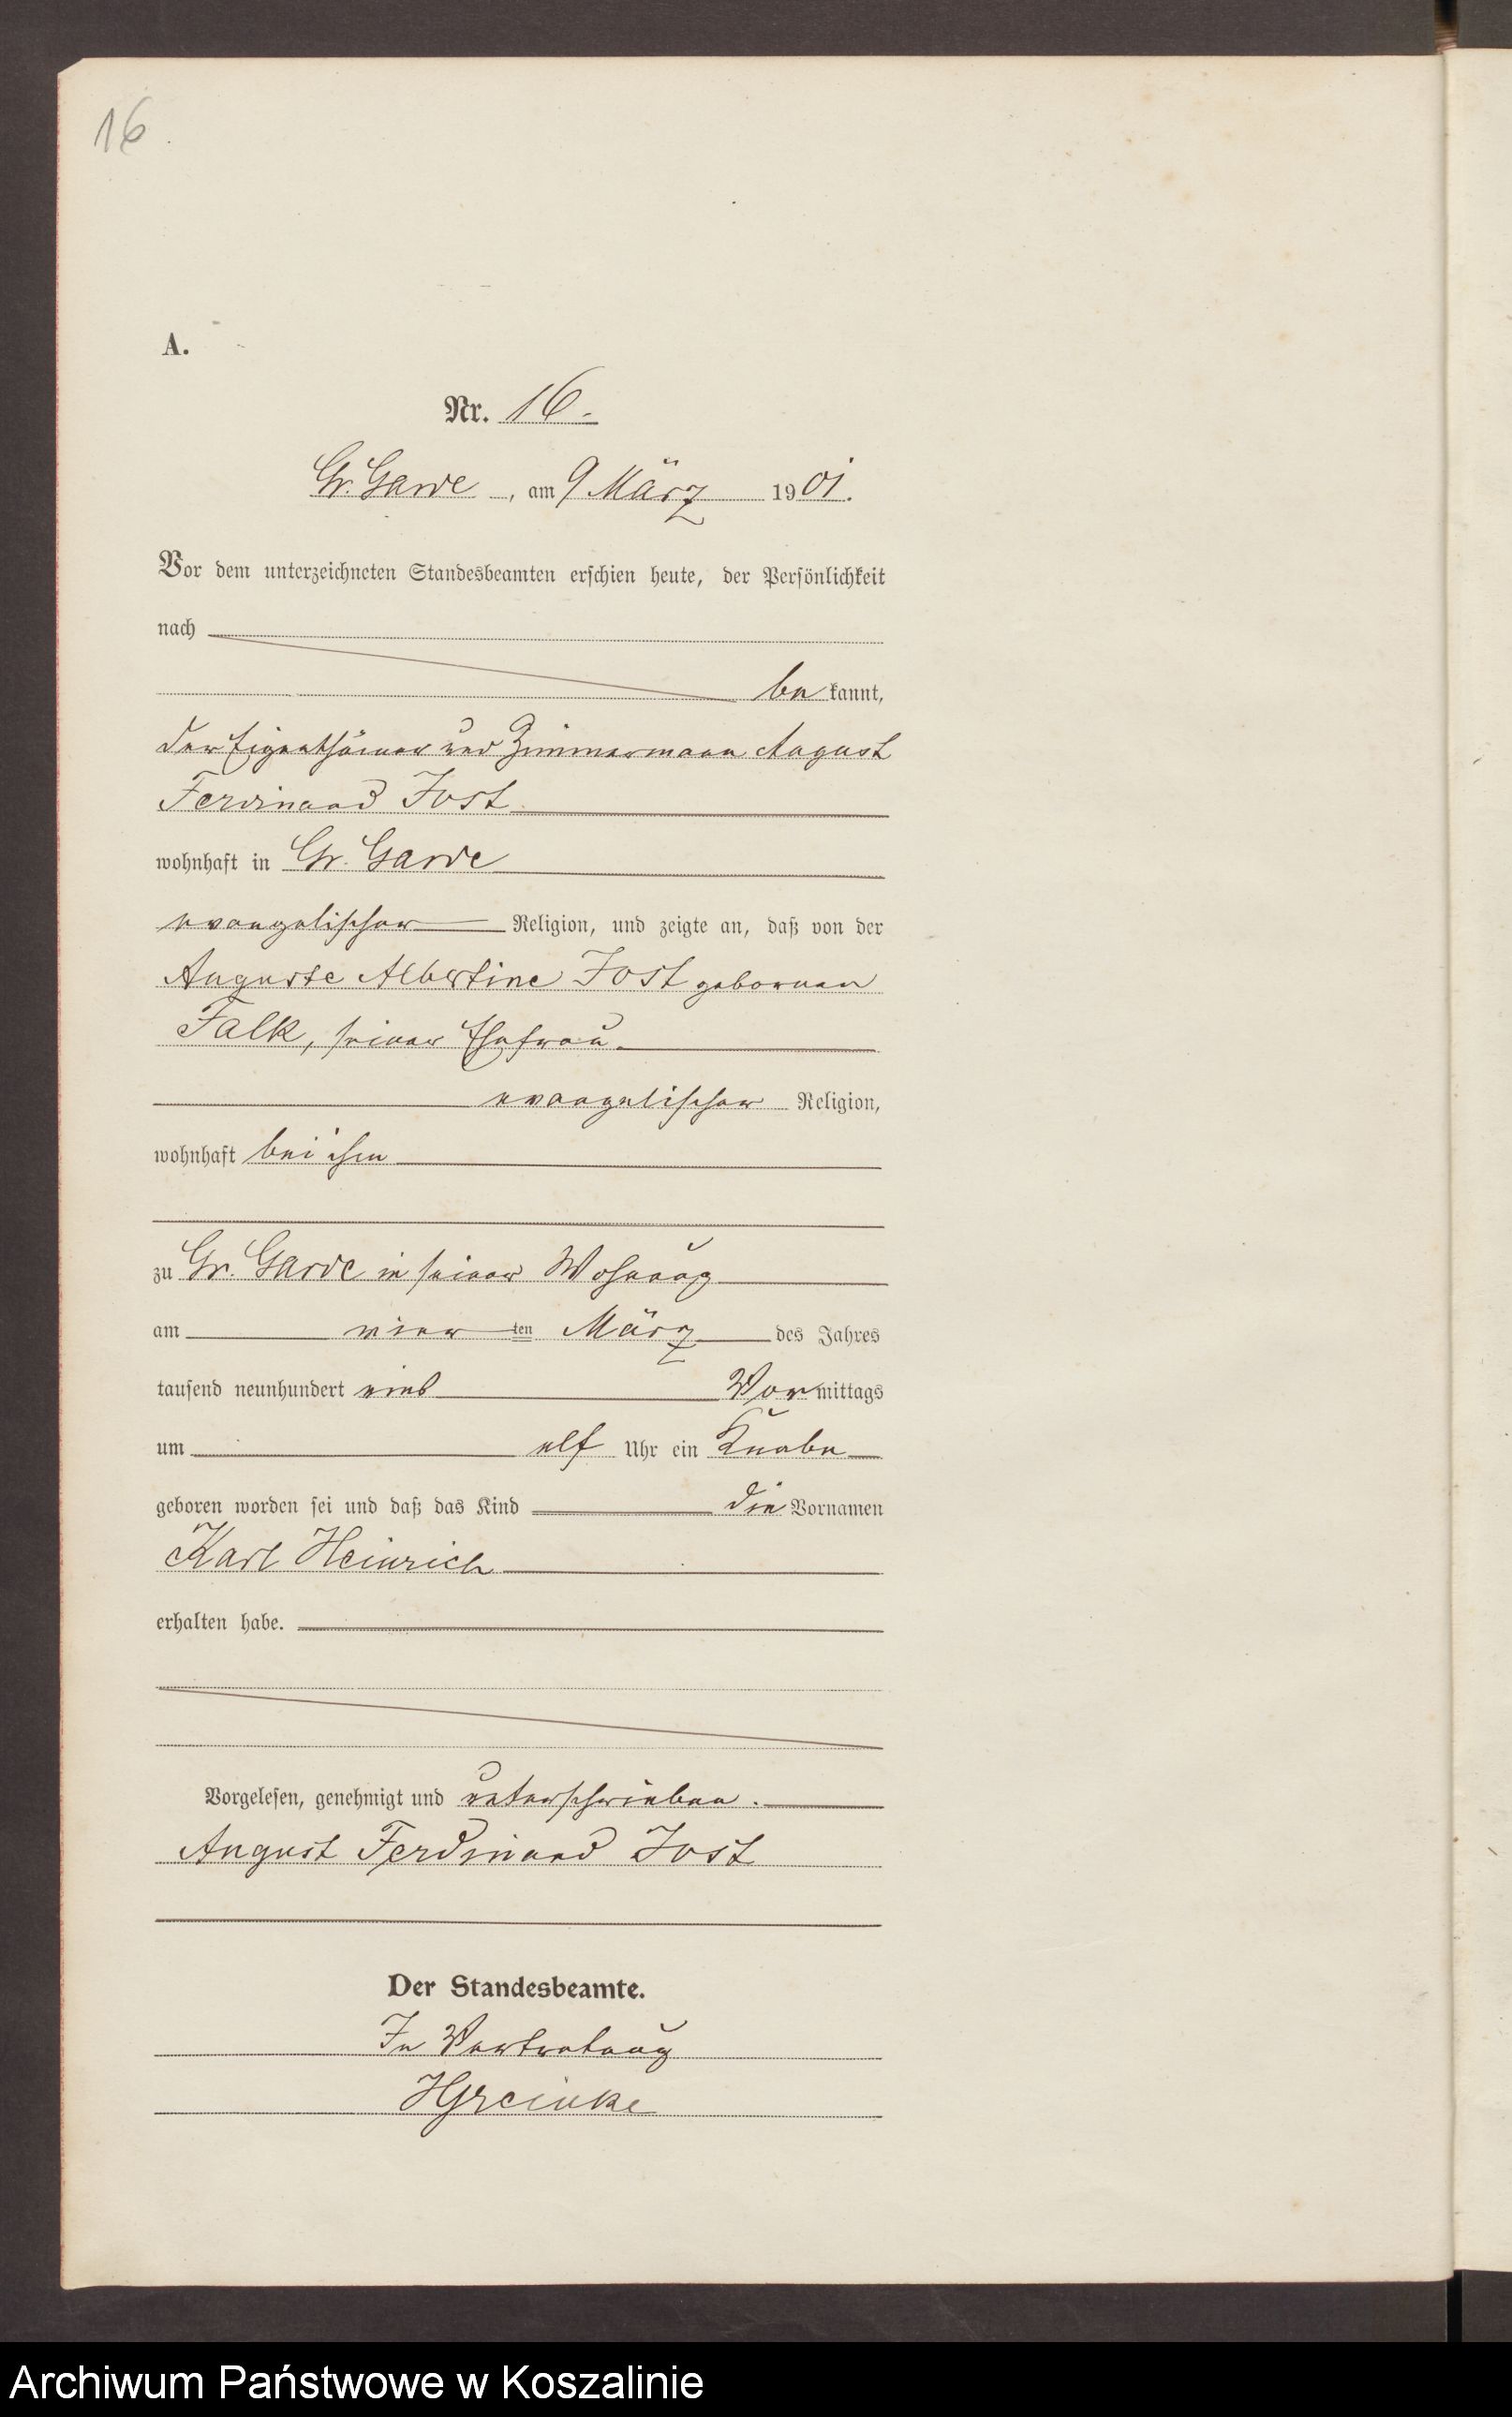 16.
A.
Nr. 16.
Gr. Garde, am 9 März 1901.
Vor dem unterzeichneten Standesbeamten erschien heute, der Persönlichkeit
nach
be kannt,
der Eigenthümer und Zimmermann August
Ferdinand Jost
wohnhaft in Gr. Garde
evangelischer Religion, und zeigte an, daß von der
Auguste Albertine Jost geborenen
Falk, seiner Ehefrau
evangelischer Religion,
wohnhaft bei ihm
zu Gr. Garde in seiner Wohnung
am vier ten März des Jahres
tausend neunhundert eins Vormittags
um elf Uhr ein Knabe
geboren worden sei und daß das Kind die Vornamen
Karl Heinrich
erhalten habe.
Vorgelesen, genehmigt und unterschrieben.
August Ferdinand Jost
Der Standesbeamte.
In Vertretung
Archiwum Państwowe w Koszalinie